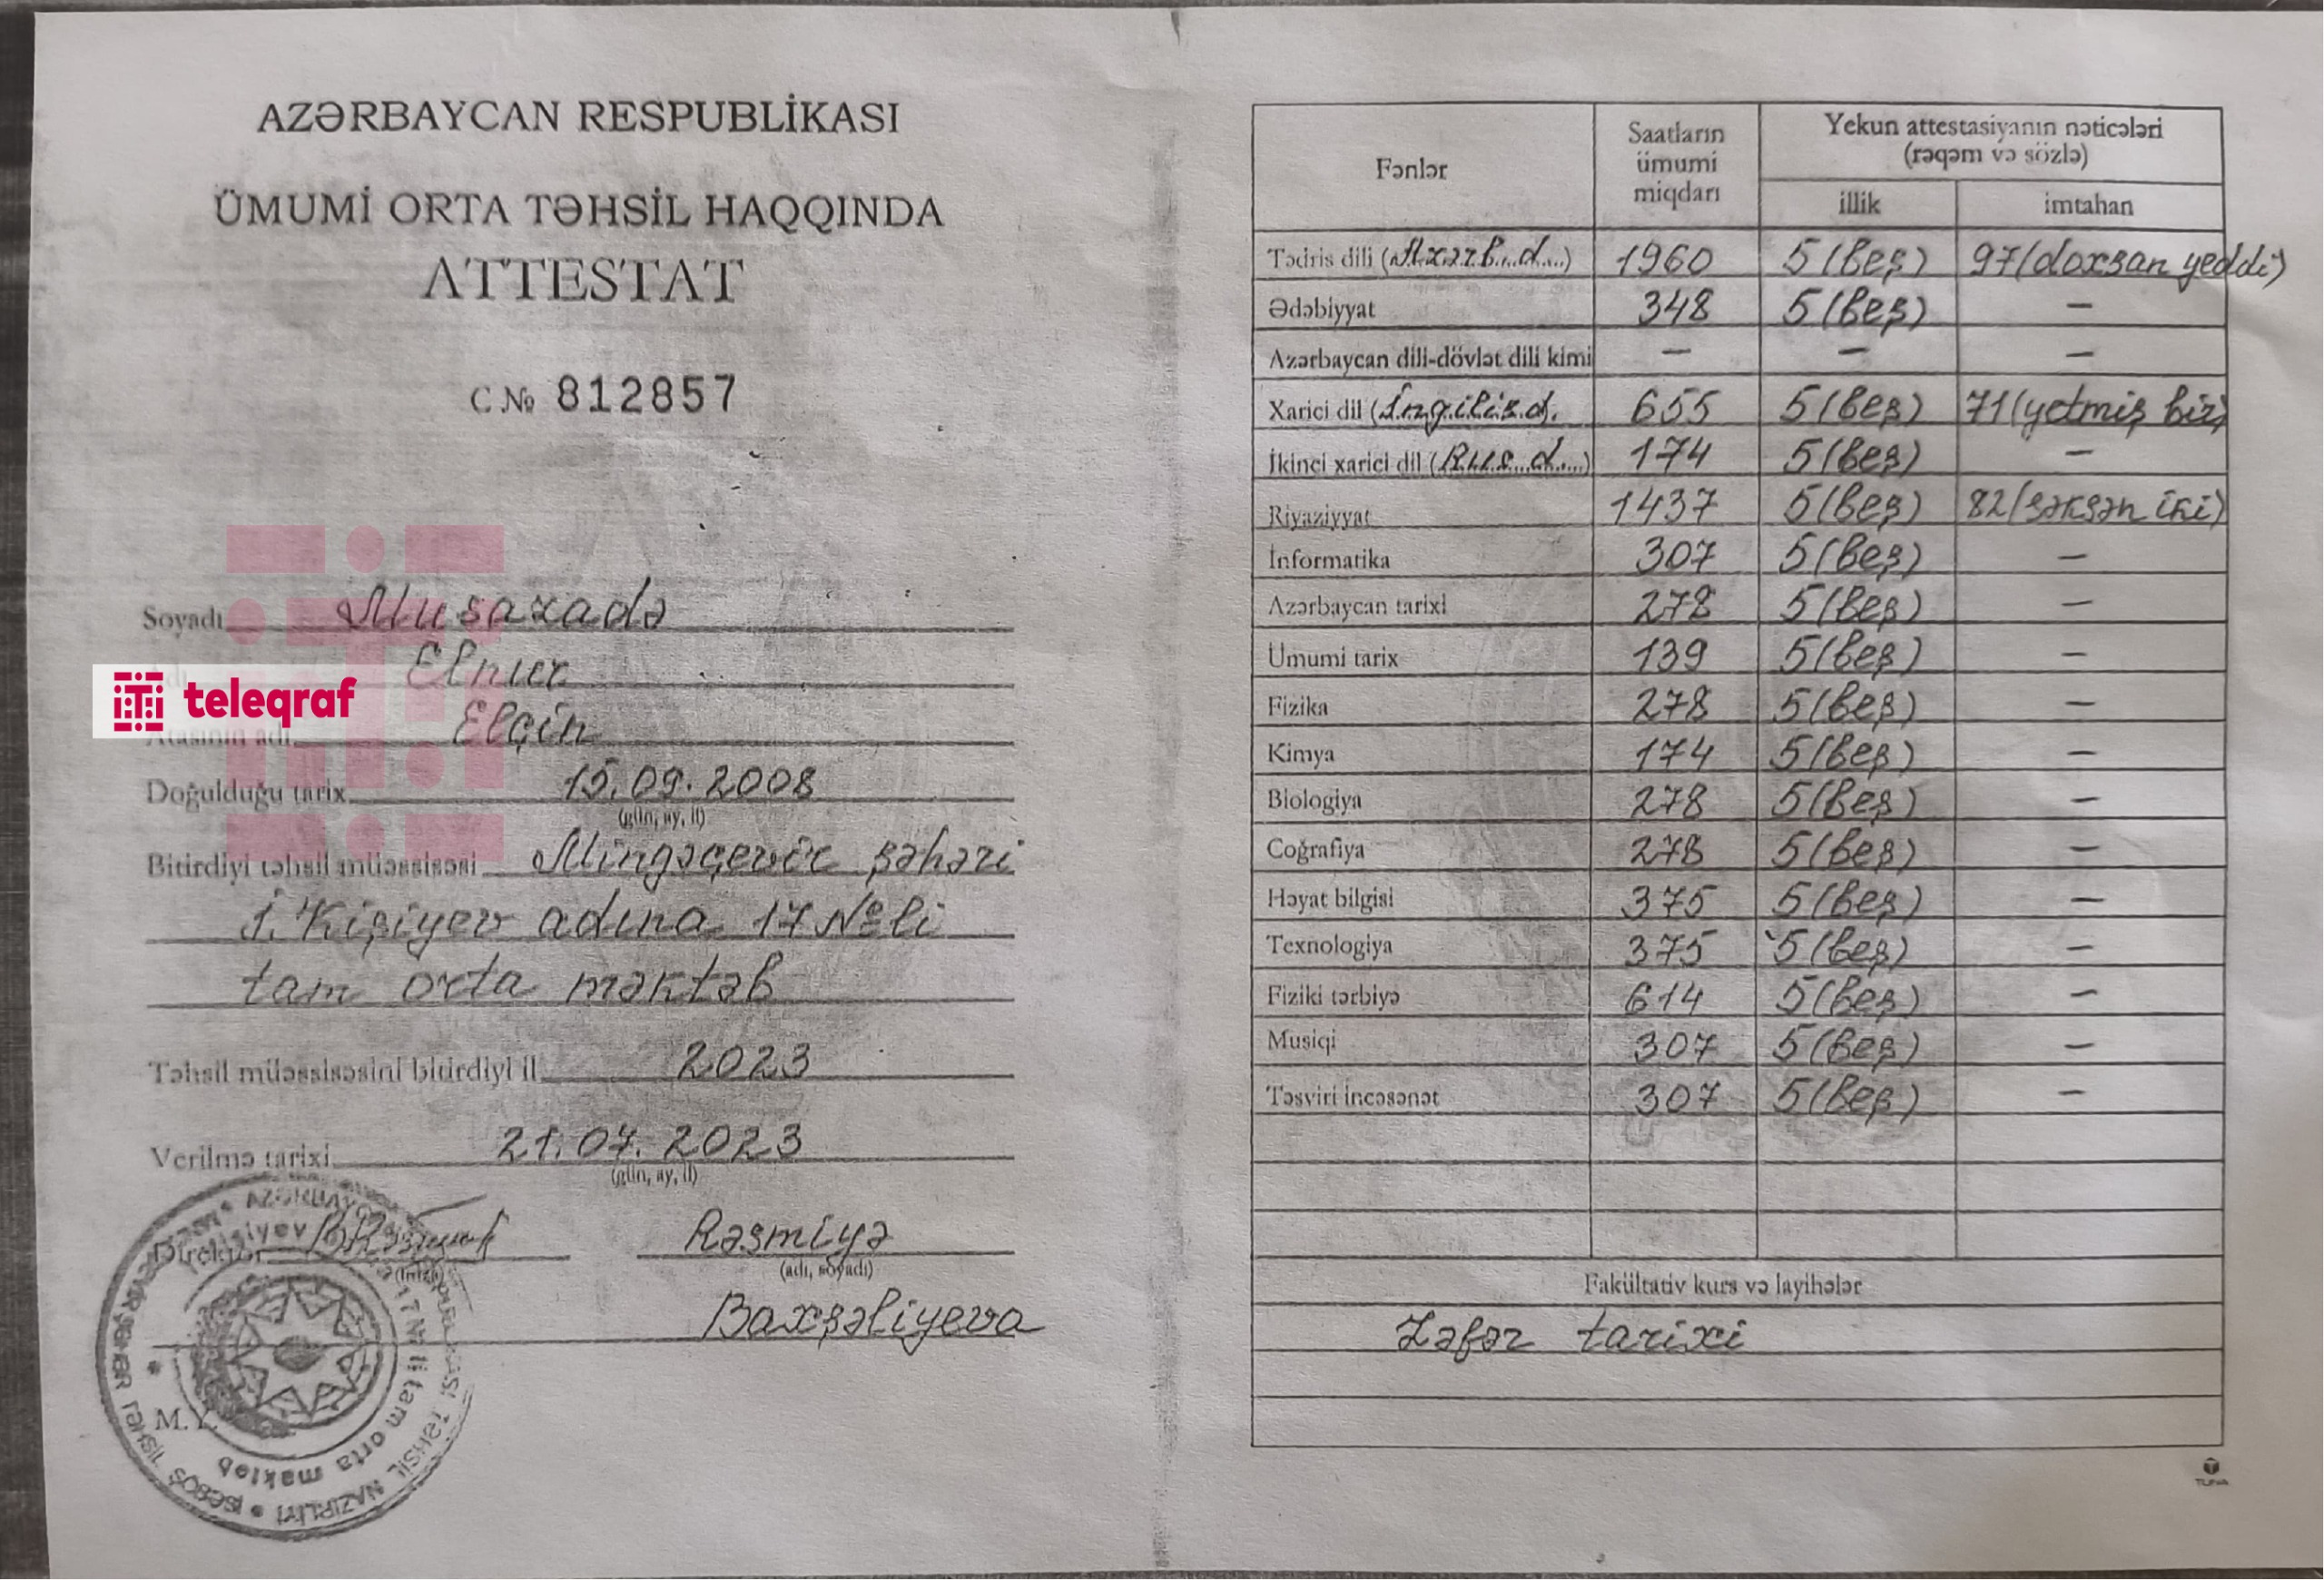 AZƏRBAYCAN RESPUBLİKASI
ÜMUMİ ORTA TƏHSİL HAQQINDA
ATTESTAT
C № 812857
Soyadı Musazadə
Elnur
teleqraf
Atasının adı Elçin
Doğulduğu tarix 15.09.2008
(gün, ay, il)
Bitirdiyi təhsil müəssisəsi Mingəçevir şəhəri
İ. Kişiyev adına 17 №li
tam orta məktəb
Təhsil müəssisəsini bitirdiyi il 2023
Verilmə tarixi 21.07.2023
(gün, ay, il)
Direktor Rəsmiyə
(imza) (adı, soyadı)
Baxşəliyeva
M.Y.
17 №li tam orta məktəb
Fənlər
Saatların
ümumi
miqdarı
Yekun attestasiyanın nəticələri
(rəqəm və sözlə)
illik imtahan
Tədris dili (Azərb. d.) 1960 5 (beş) 97 (doxsan yeddi)
Ədəbiyyat 348 5 (beş) –
Azərbaycan dili-dövlət dili kimi – – –
Xarici dil (İngilis d. 655 5 (beş) 71 (yetmiş bir)
İkinci xarici dil (Rus d.) 174 5 (beş) –
Riyaziyyat 1437 5 (beş) 82 (səksən iki)
İnformatika 307 5 (beş) –
Azərbaycan tarixi 278 5 (beş) –
Ümumi tarix 139 5 (beş) –
Fizika 278 5 (beş) –
Kimya 174 5 (beş) –
Biologiya 278 5 (beş) –
Coğrafiya 278 5 (beş) –
Həyat bilgisi 375 5 (beş) –
Texnologiya 375 5 (beş) –
Fiziki tərbiyə 614 5 (beş) –
Musiqi 307 5 (beş) –
Təsviri incəsənət 307 5 (beş) –
Fakültativ kurs və layihələr
Zəfər tarixi